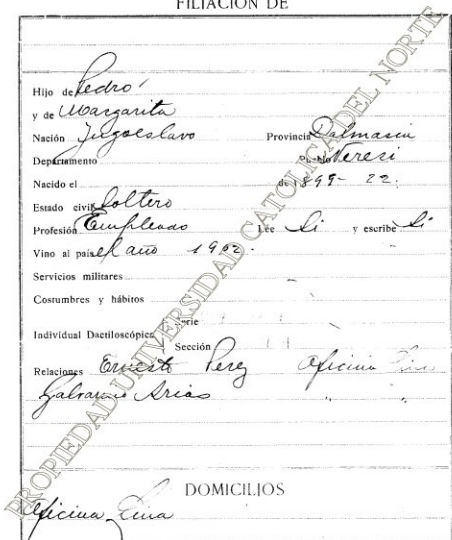 FILIACION DE
Hijo de Pedro
y de Margarita
Nación Jugoeslavo Provincia Dalmacia
Departamento Pueblo Neresi
Nacido el de 1899- 22.
Estado civil Soltero
Profesión Empleado Lée Si y escribe Si
Vino al país el año 1902.
Servicios militares
Costumbres y hábitos
Individual Dactiloscópica Serie
Sección
Relaciones Ernesto Perez Oficina Lina
Galvarino Arias " "
DOMICILIOS
Oficina Lina
PROPIEDAD UNIVERSIDAD CATOLICA DEL NORTE